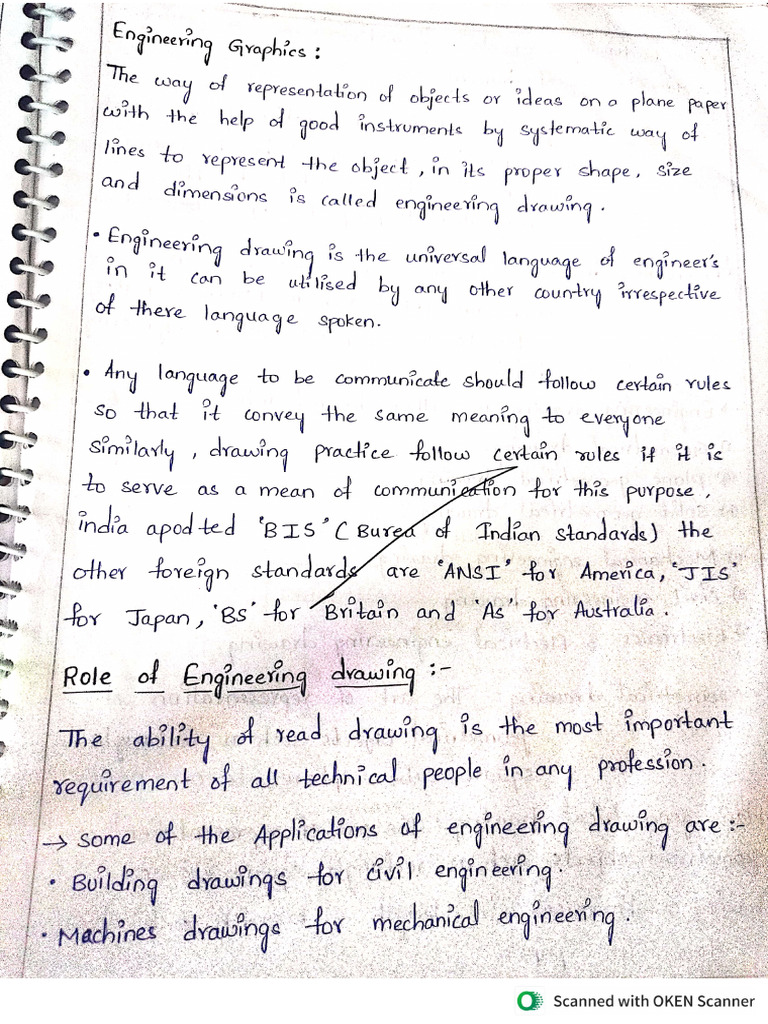 Engineering Graphics :
The way of representation of objects or ideas on a plane paper
with the help of good instruments by systematic way of
lines to represent the object, in its proper shape, size
and dimensions is called engineering drawing.
• Engineering drawing is the universal language of engineer's
in it can be utilised by any other country irrespective
of there language spoken.
• Any language to be communicate should follow certain rules
so that it convey the same meaning to everyone
similarly, drawing practice follow certain rules if it is
to serve as a mean of communication for this purpose,
india apodted 'BIS' ( Burea of Indian standards) the
other foreign standards are 'ANSI' for America, 'JIS'
for Japan, 'BS' for Britain and 'As' for Australia.
Role of Engineering drawing :-
The ability of read drawing is the most important
requirement of all technical people in any profession.
→ some of the Applications of engineering drawing are :-
• Building drawings for civil engineering.
• Machines drawings for mechanical engineering.
Scanned with OKEN Scanner